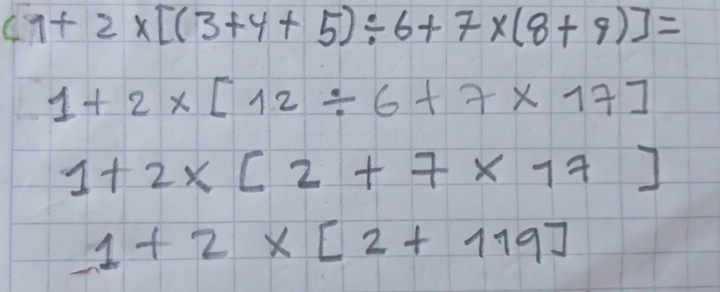 C 1 + 2 × [(3+4+5) ÷ 6 + 7 × (8+9)] =
1 + 2 × [ 12 ÷ 6 + 7 × 17 ]
1 + 2 × [ 2 + 7 × 17 ]
1 + 2 × [ 2 + 119 ]